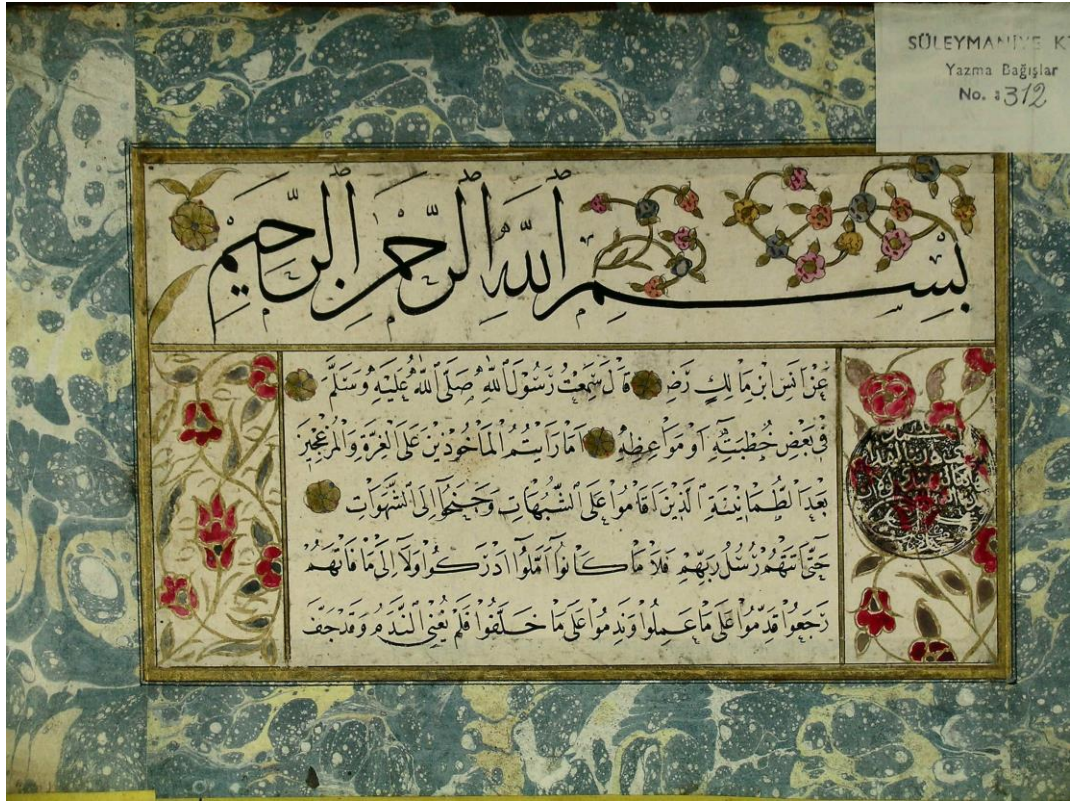 SÜLEYMANİYE K
Yazma Bağışlar
No. : 312
بسم الله الرحمن الرحيم
عن انس ابن مالك رض قال سمعت رسول الله صلى الله عليه وسلم
فى بعض خطبته او مواعظه اما رايتم الماخوذين على الغرة والمزعجين
بعد الطمانينة الذين اقاموا على الشبهات وجنحوا الى الشهوات
حتى اتتهم رسل ربهم فلا ما كانوا املوا ادركوا ولا الى ما فاتهم
رجعوا قدموا على ما عملوا وندموا على ما خلفوا فلم يغنى الندم وقد جف